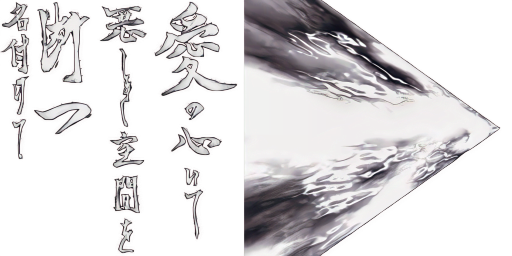 愛の心にて
悪しき空間を
断つ
名付けて